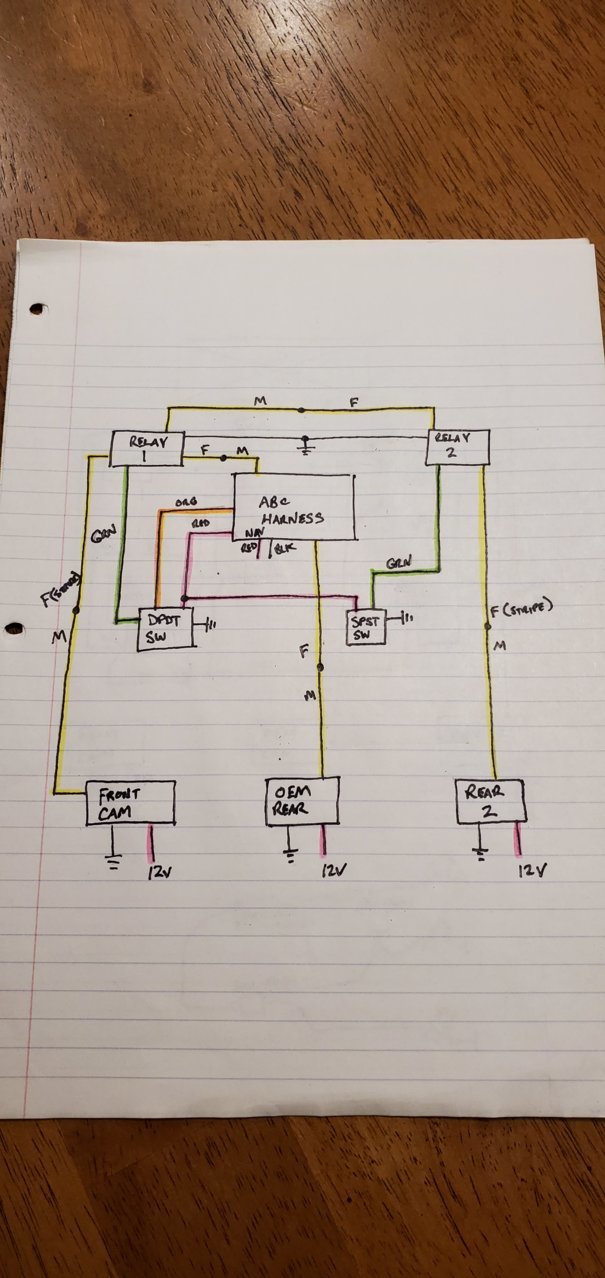 M
F
RELAY
1
RELAY
2
F
M
ABC
HARNESS
ORG
RED
NAV
RED
BLK
GRN
GRN
DPDT
SW
SPST
SW
F
M
F (STRIPE)
M
F
M
FRONT
CAM
OEM
REAR
REAR
2
12V
12V
12V